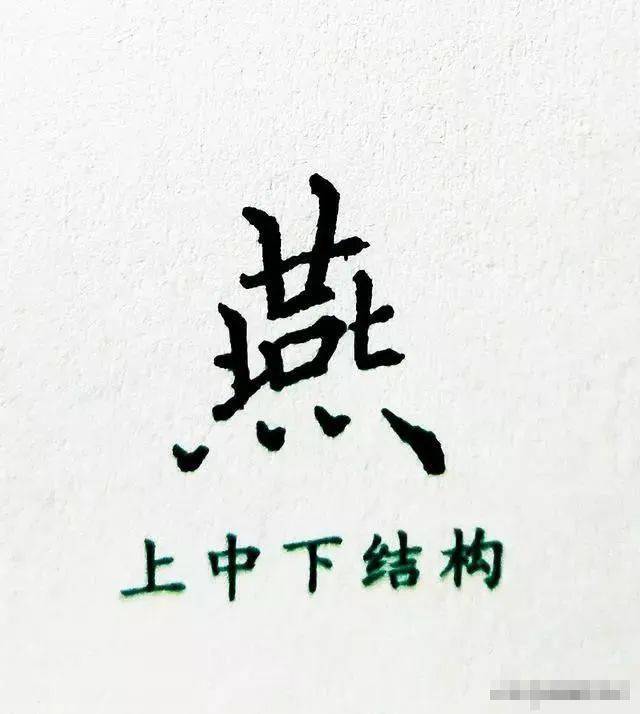 燕
上中下结构